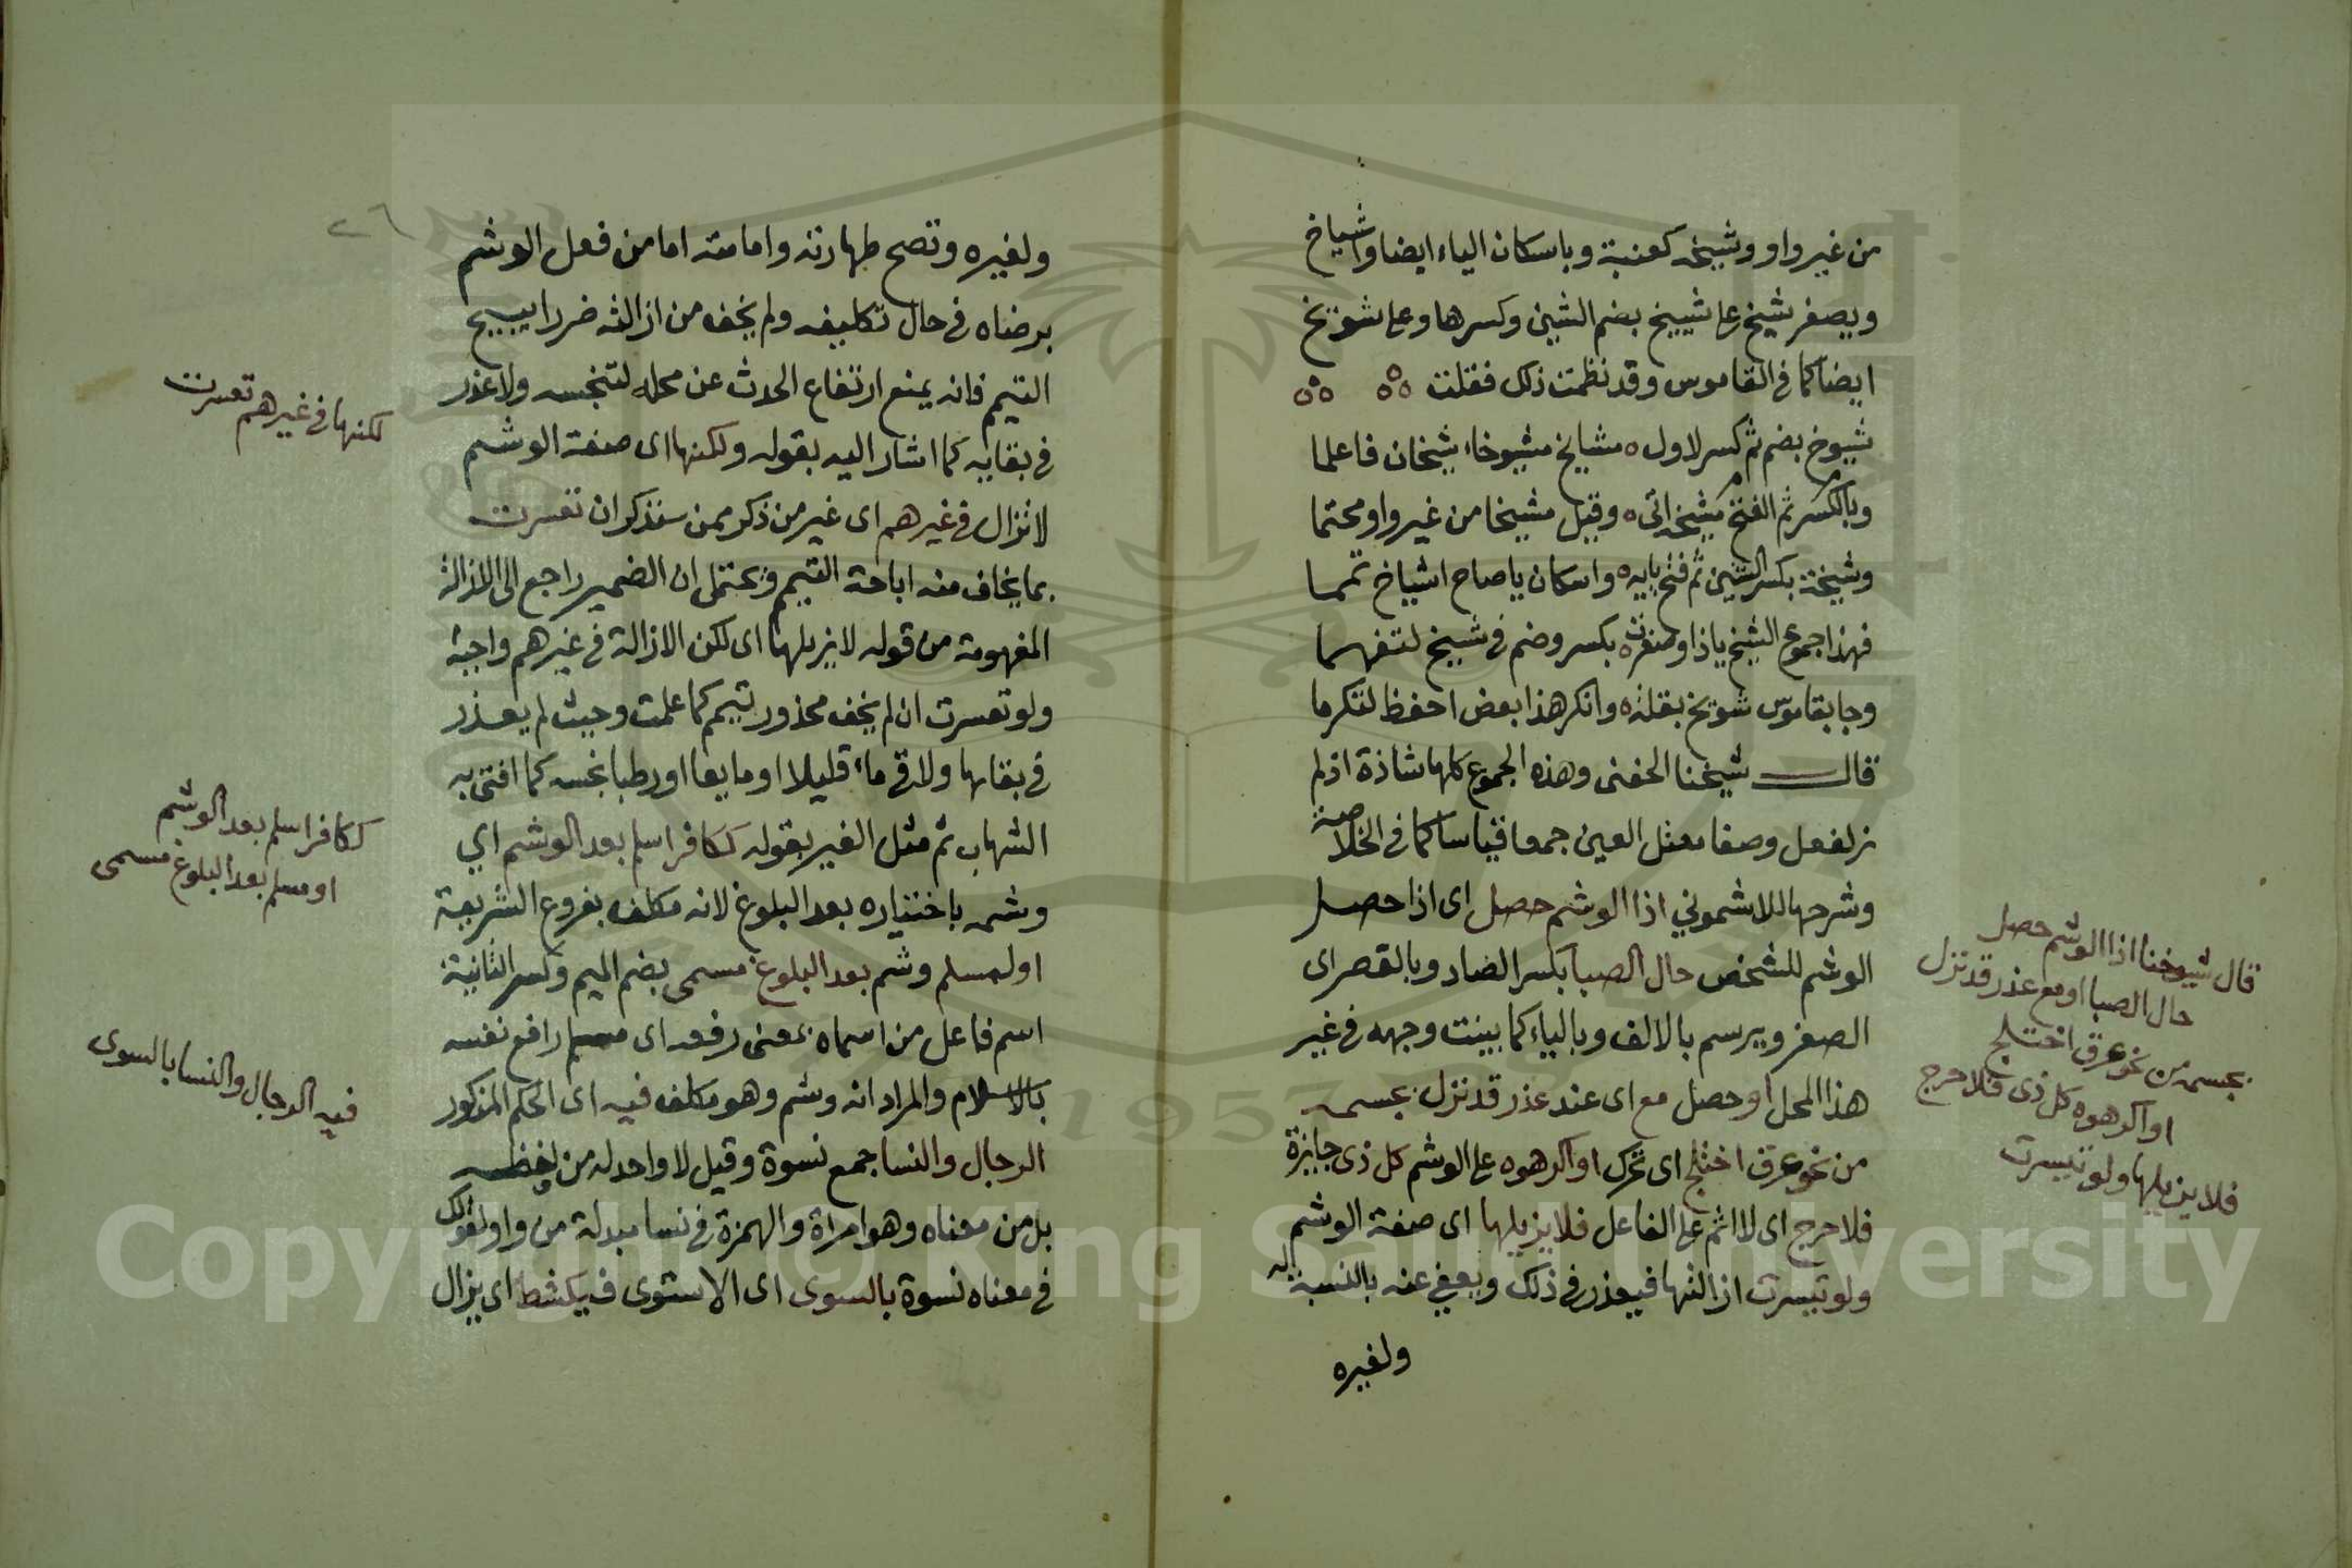 من غير واو وشيخه كعنبة وباسكان الياء ايضا واشياخ
ويصغر شيخ على شييخ بضم الشين وكسرها وعلى شويخ
ايضا كما في القاموس وقد نظمت ذلك فقلت
شيوخ بضم ثم كسر لاول ٥ مشايخ مشيوخاء شيخان فاعلما
وبالكسر ثم الفتح مشيخه اتى ٥ وقيل مشيخا من غير واو محتما
وشيخة بكسر الشين ثم فتح يايه ٥ واسكان يا صاح اشياخ تمما
فهذا جموع الشيخ يا ذا وصغرت ٥ بكسر وضم في شييخ لتفهما
وجا بقاموس شويخ بقلة ٥ وانكر هذا بعض احفظ لتكرما
قال شيخنا الحفني وهذه الجموع كلها شاذة اذ لم
نر لفعل وصفا معتل العين جمعا قياسا كما في الخلاصة
وشرحها للاشموني اذا الوشم حصل اى اذا حصل
الوشم للشخص حال الصبا بكسر الصاد وبالقصر اى
الصغر ويرسم بالالف وبالياء كما بينت وجهه في غير
هذا المحل او حصل مع اى عند عذر قد نزل بجسمه
من نحو عرق اختلج اى تحرك او اكرهوه على الوشم كل ذى جايزة
فلا حرج اى لا اثم على الفاعل فلا يزيلها اى صفة الوشم
ولو تيسرت ازالتها فيعذر في ذلك ويعفي عنه بالنسبة له
ولغيره
قال شيوخنا اذا الوشم حصل
حال الصبا او مع عذر قد نزل
بجسمه من نحو عرق اختلج
او اكرهوه كل ذى فلا حرج
فلا يزيلها ولو تيسرت
٢٦
ولغيره وتصح طهارته وامامته اما من فعل الوشم
برضاه في حال تكليفه ولم يخف من ازالته ضررا يبيح
التيمم فانه يمنع ارتفاع الحدث عن محله لتنجسه ولا عذر
في بقايه كما اشار اليه بقوله ولكنها اى صفة الوشم
لا تزال في غيرهم اى غير من ذكر ممن سنذكر ان تعسرت
بما يخاف منه اباحة التيمم ويحتمل ان الضمير راجع الى الازالة
المفهومة من قوله لا يزيلها اى لكن الازالة في غيرهم واجبة
ولو تعسرت ان لم يخف محذور تيمم كما علمت وحيث لم يعذر
في بقايها ولاقى ماء قليلا او مايعا او رطبا نجسه كما افتى به
الشهاب ثم مثل الغير بقوله ككافر اسلم بعد الوشم اي
وشمه باختياره بعد البلوغ لانه مكلف بفروع الشريعة
او لمسلم وشم بعد البلوغ مسمى بضم الميم وكسر الثانية
اسم فاعل من اسماه بمعنى رفعه اى رافع نفسه
بالاسلام والمراد انه وشم وهو مكلف فيه اى الحكم المذكور
الرجال والنسا جمع نسوة وقيل لا واحد له من لفظه
بل من معناه وهو امراة والهمزة في نسا مبدلة من واو لقولك
في معناه نسوة بالسوى اى الاستوى فيكشط اى يزال
لكنها في غيرهم تعسرت
ككافر اسلم بعد الوشم
او مسلم بعد البلوغ مسمى
فيه الرجال والنسا بالسوى
1957
Copyright © King Saud University